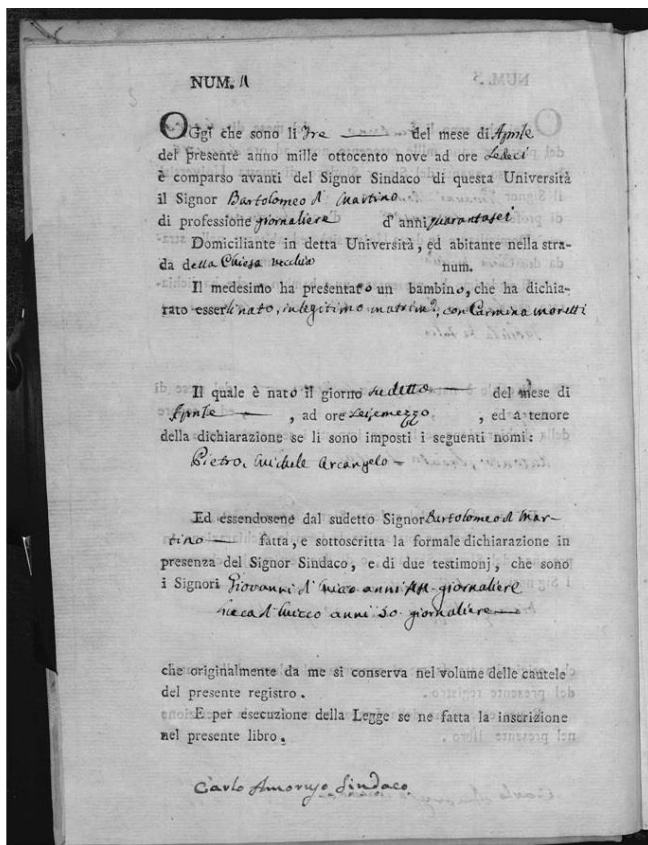 NUM. 11
OGgi che sono li Tre del mese di Aprile
del presente anno mille ottocento nove ad ore Sedeci
è comparso avanti del Signor Sindaco di questa Università
il Signor Bartolomeo d' Martino
di professione giornaliere d' anni quarantasei
Domiciliante in detta Università, ed abitante nella stra-
da della Chiesa vecchia num.
Il medesimo ha presentato un bambino, che ha dichia-
rato esserli nato, in legitimo matrim.°, con Carmina moretti
Il quale è nato il giorno sudetto del mese di
Aprile , ad ore seiemezzo , ed a tenore
della dichiarazione se li sono imposti i seguenti nomi :
Pietro, Michele Arcangelo
Ed essendosene dal sudetto Signor Bartolomeo d' Mar-
tino fatta, e sottoscritta la formale dichiarazione in
presenza del Signor Sindaco, e di due testimonj, che sono
i Signori Giovanni d' anni giornaliere
d' anni 30 giornaliere
che originalmente da me si conserva nel volume delle cautele
del presente registro .
E per esecuzione della Legge se ne fatta la inscrizione
nel presente libro .
Carlo Amoruso Sindaco